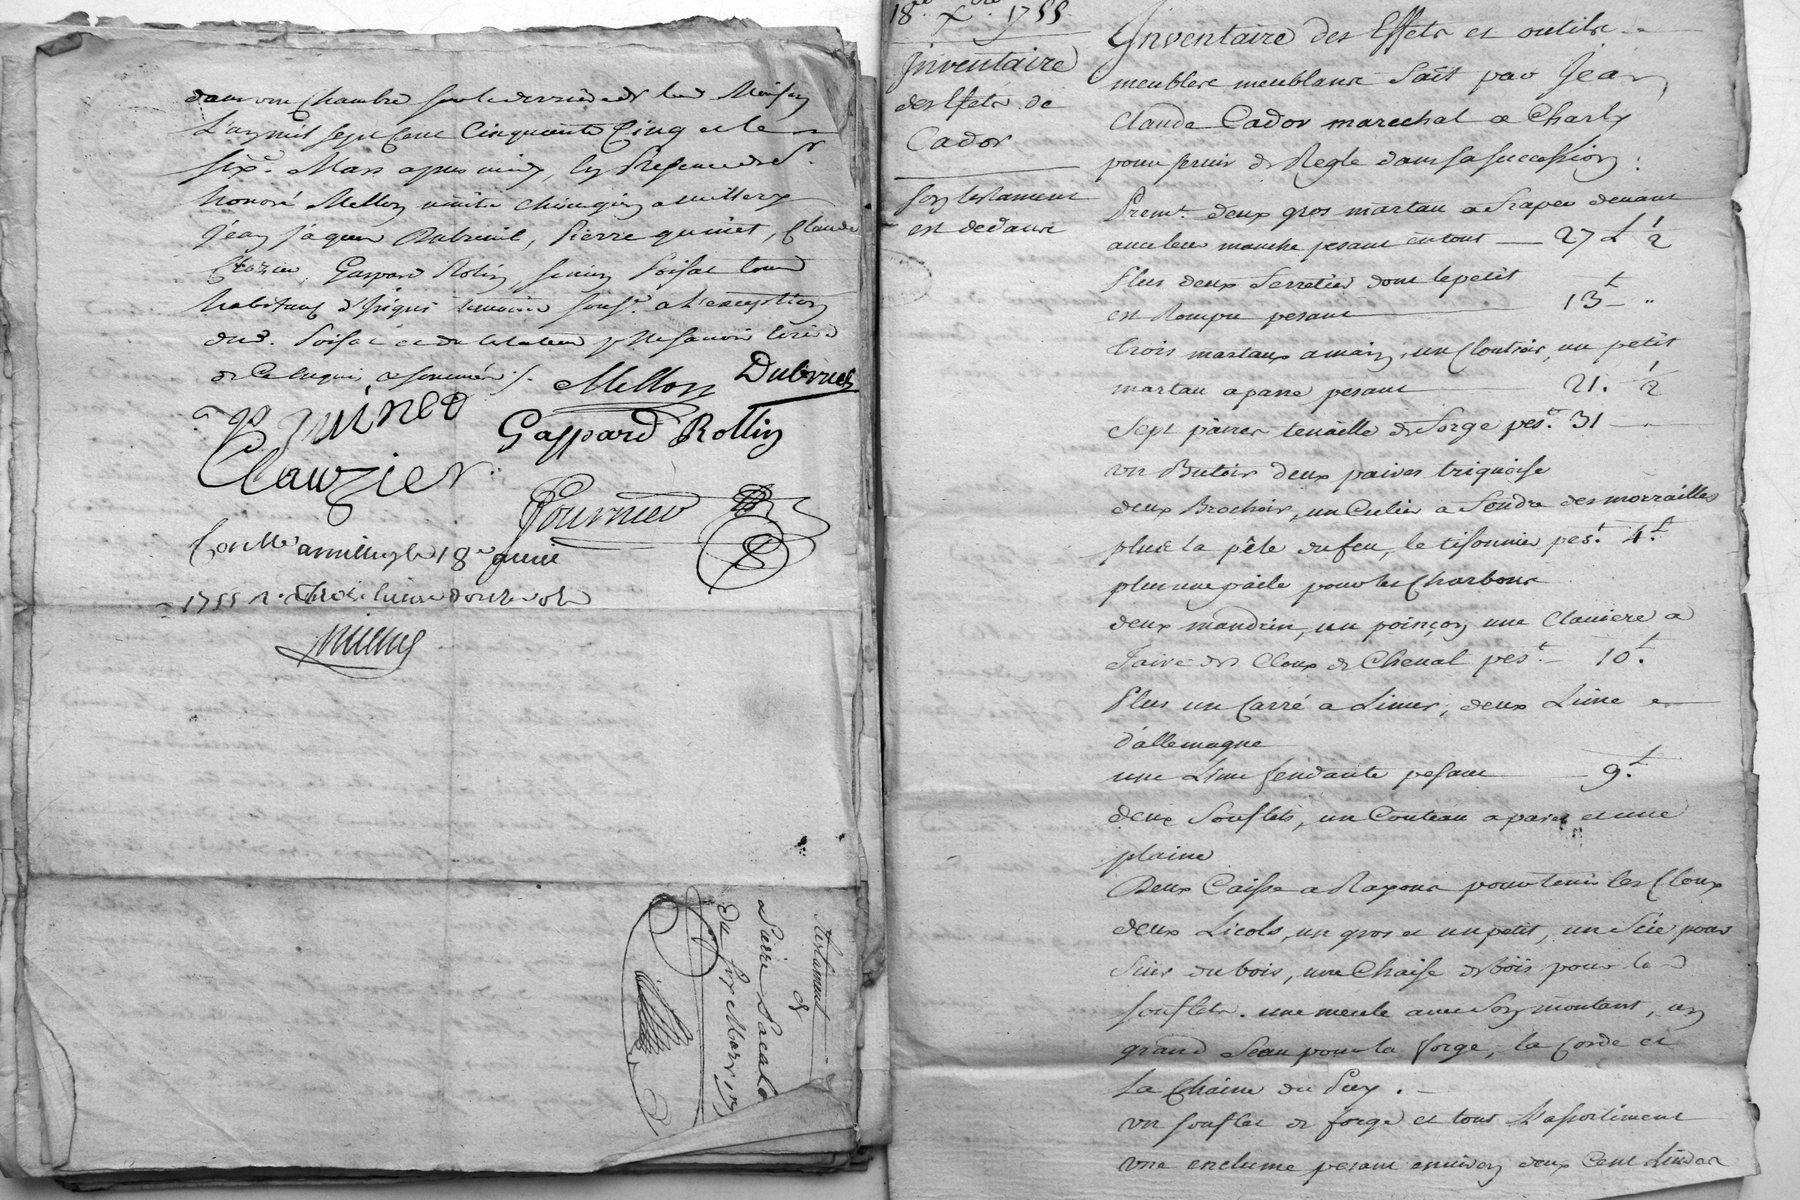 dans une Chambre sur le derriere de lad. Maison
L'an mil sept Cent Cinquante Cinq et le
six.e Mars apres midy, En Presence de Sr.
honoré Mellon maitre chirurgien a millery
Jean Jaques Dubreuil, Pierre quinet, Claude
Clozier, Gaspard Rolin, Poisat tous
habitans d'Irigni temoins souss.t a l'exception
dud. Poisat et du testateur p. ne savoir ecrire
de Ce Enquis et sommés ./.
Mellon Dubrueil
Quineo
Gaspard Rollin
Clauzier
Fournier
Con.lle a millery le 18e
1755 R. Trois livres douze sols
Testament
de
Pierre Pacalo
du six Mars 17
18e Xbre 1755
Inventaire
des Effets de
Cador
son testament
est dedans
Inventaire des Effets et outils
meubles meublans Fait par Jean
Claude Cador marechal a Charly
pour servir de Regle dans sa succession :
Premt. deux gros martau a fraper devant
avec leur manche pesant en tout — 27 L 1/2
Plus deux Serretier dont le petit
est Rompu pesant 13 L "
trois martaux a main, un Cloutier, un petit
martau a panne pesant 21. 1/2
Sept paires tenaille de Forge pest. 31 —
un Butoir deux paires triquoise
deux Brochoir, un Culier a Fondre des morrailles
plus la pêle du feu, le tisonnier pest. 4. L
plus une paile pour les Charbons
deux mandrin, un poinçon une Claviere a
Faire des Cloux de Cheval pest. — 10. L
Plus un Carré a Limer, deux Lime
d'allemagne
une Lime fendante pesant — 9. L
deux Souflets, un Couteau a parer et une
plaine
Deux Caisse a Rayons pour tenir les Cloux
deux Licols, un gros et un petit, un Scie pour
Sier du bois, une Chaise de bois pour le
souflets. une meule avec Son montant, un
grand Seau pour la forge, la Corde et
La Chaine du Puy. —
un souflet de forge et tout L'assortiment
une enclume pesant environ deux Cent Livres